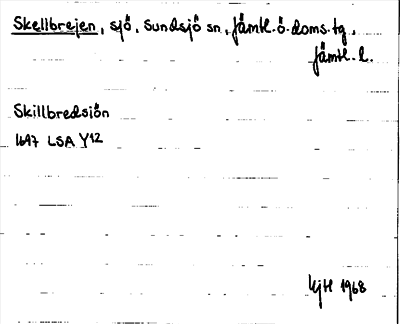 Skellbrejen, sjö, Sundsjö sn, Jämtl. ö. doms. tg,
Jämtl. l.
Skillbredsiön
1697 LSA Y12
HjH 1968